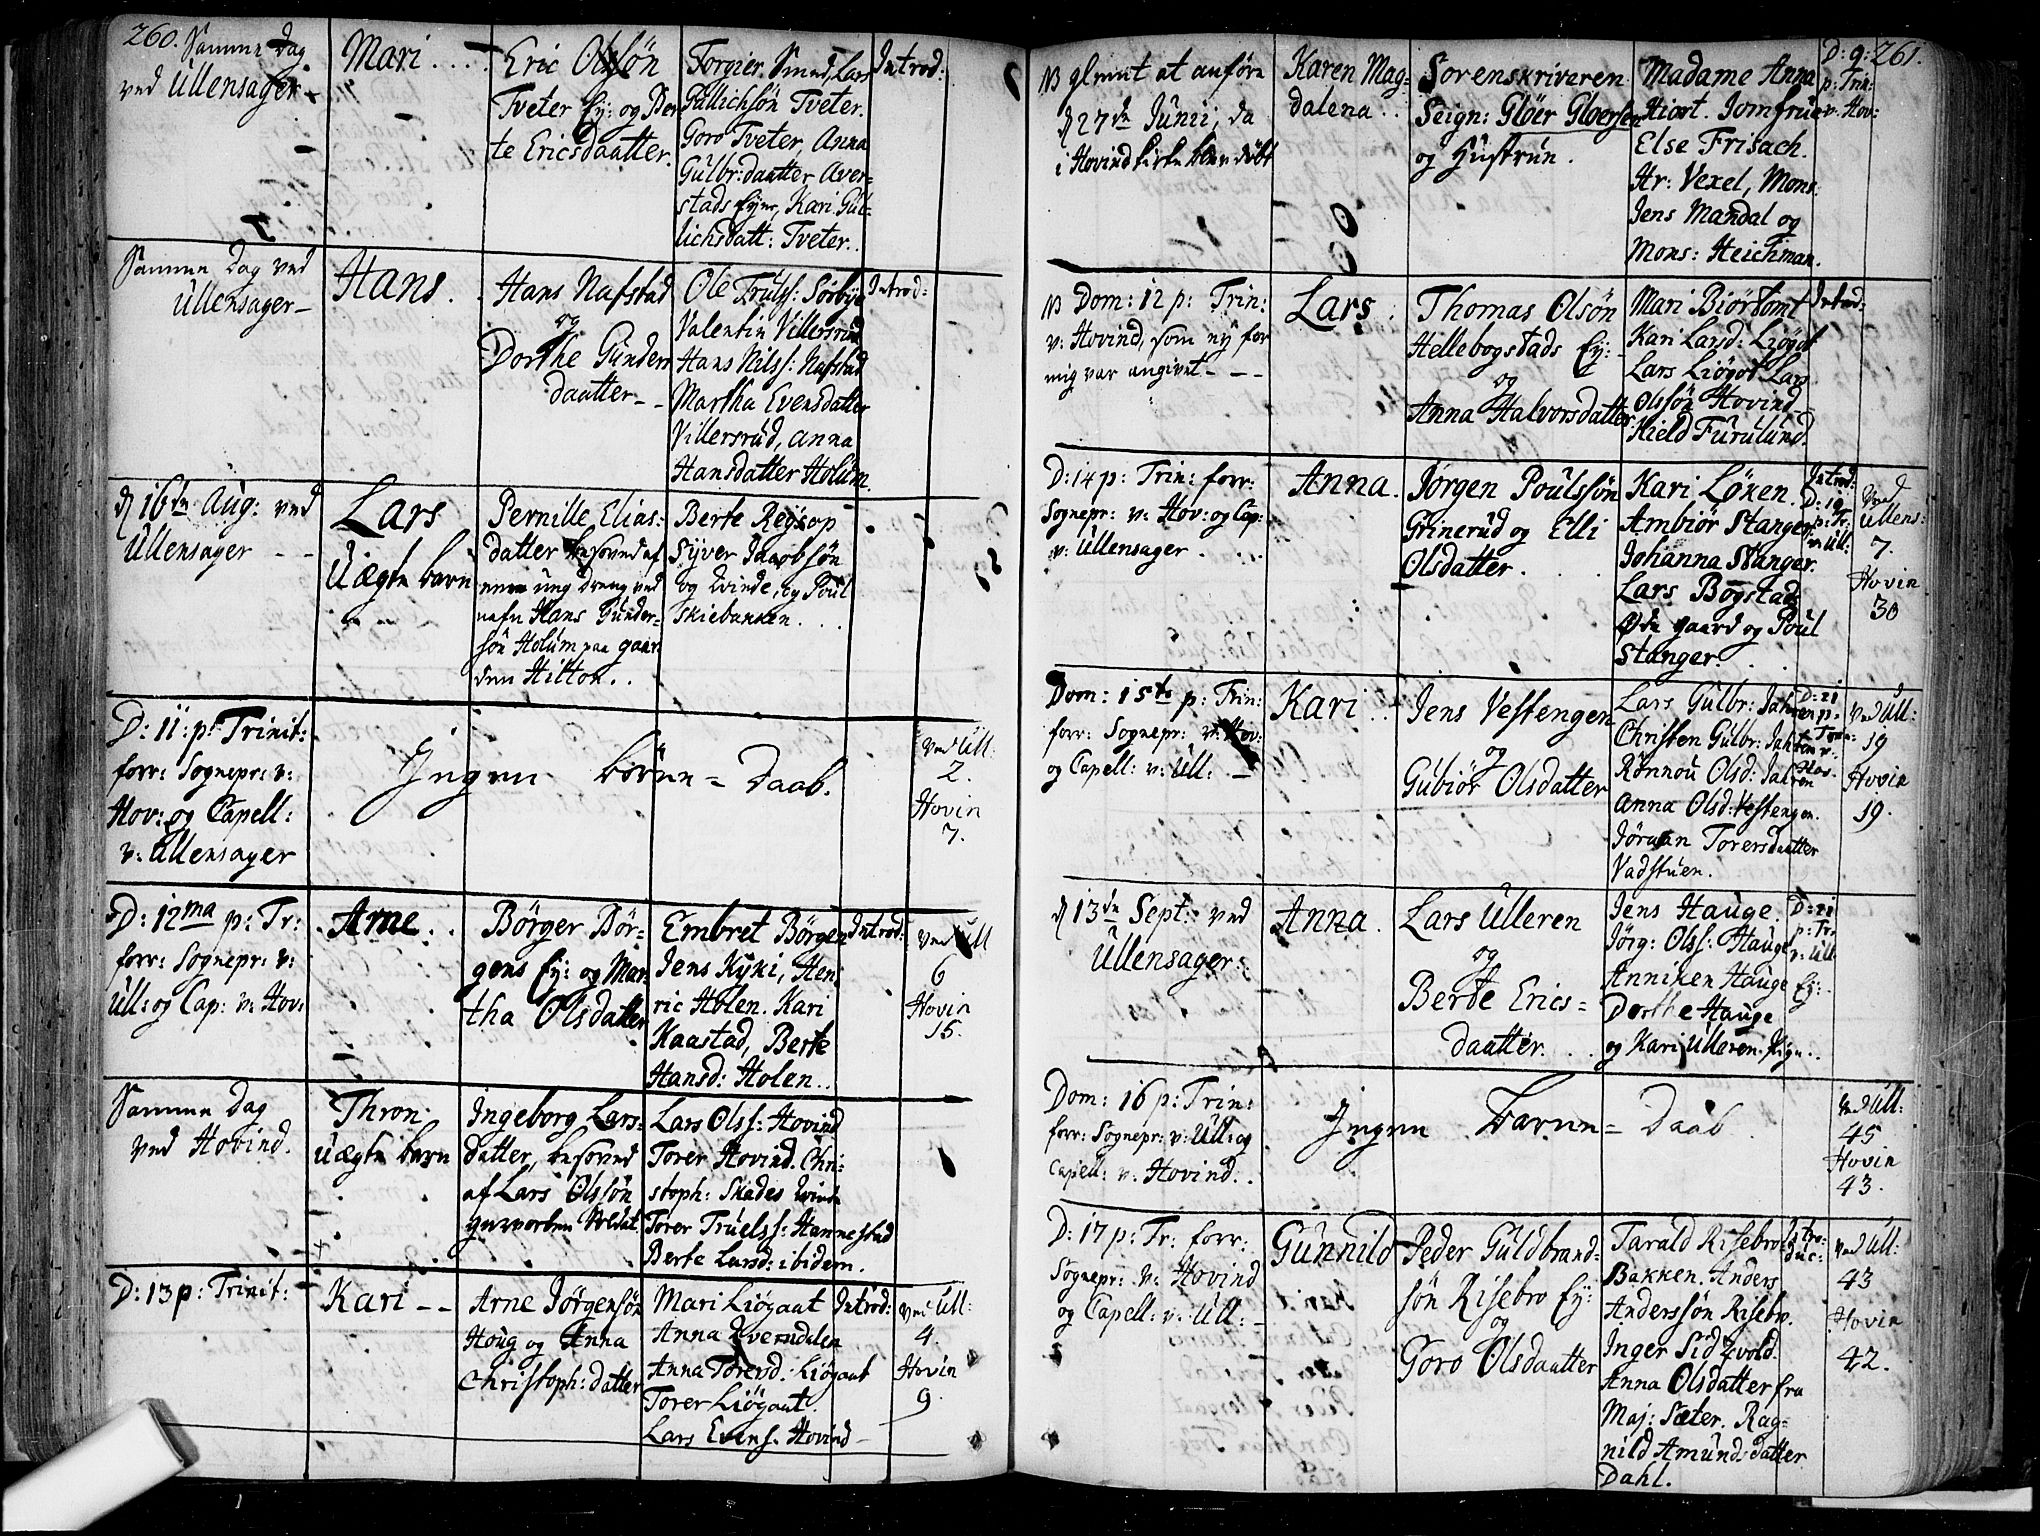 260.
Samme Dag
ved Ullensager
Mari
Eric Olssön
Tveter Ey: og Ber
te Ericsdaatter.
Torgier Smed, Lars
Gullichsön Tveter.
Goro Tveter, Anna
Gulbr: daatter Aver-
stads Eyer, Kari Gul-
lichsdatt: Tveter.
Introd:
Samme Dag ved
Ullensager
Hans.
Hans Nafstad
og
Dorthe Gunders
daatter
Ole Trulss: Sörbye
Valentin Villersrud
Hans Nilss: Nafstad
Martha Evensdatter
Villersrud, Anna
Hansdatter Holum.
Introd:
d 16de Aug: ved
Ullensager
Lars
Uægte barn
Pernille Elias:
datter besoved af
en ung Dreng ved
nafn Hans Gunder-
sön Holum paa gaar
den Hilton.
Berte
Syver Jacobsön
og Qvinde, og Poul
Skiebakken.
D: 11: p: Trinit:
forr: Sognepr: v:
Hov: og Capell:
v: Ullensager
Ingen börne-Daab.
ved Ull:
2.
Hovin
7.
D: 12ma p: Tr:
forr: Sognepr: v:
Ull: og Cap: v: Hov:
Arne.
Börger Bör-
gens Ey: og Mar
tha Olsdatter
Embret Börgen
Jens Kyki, Hen
ric Holen. Kari
Kaastad, Berte
Hansd: Holen.
Introd:
ved Ull
6
Hovin
15.
Samme Dag
ved Hovind.
Thron
Uægte barn
Ingeborg Lars-
datter, besoved
af Lars Olssön
gevorben Soldat.
Lars Olss: Hovind
Torer Hovind. Chri-
stoph: Skades Qvinde
Torer Truelss: Hannestad
Berte Larsd: ibidem.
D: 13 p: Trinit:
Kari
Arne Jörgensön
Houg og Anna
Christoph: datter
Mari Liögaat
Anna Qverndalen
Anna Torersd: Liögaat
Torer Liögaat.
Lars Evens. Hovind
Introd:
ved Ull:
4.
Hovin
9.
261.
NB glemt at anföre
d 27de Junii, da
i Hovind kirke blev döbt
Karen Mag-
dalena
Sorenskriveren
Seign: Glöer Gloersen
og Hustrue.
Madame Anna
Hiort. Jomfrue
Else Frisach.
Hr: Vexel, Mons:
Jens Mandal og
Mons: Heichman.
D: 9:
p: Trin:
v: Hov:
NB Dom: 12 p: Trin:
v: Hovind, som ny for
mig var angivet
Lars
Thomas Olsön
Hellebogstads Ey:
og
Anna Halvorsdatter
Mari Biörtomt
Kari Larsd: Liögot
Lars Liögot Lars
Olssön Hovind
Kield Furulund.
Introd:
D: 14 p: Trin: forr:
Sognepr: v: Hov: og Cap:
v: Ullensager.
Anna.
Jörgen Poulssön
Grinerud og Elli
Olsdatter.
Kari Löken.
Ambiör Stanger
Johanna Stanger.
Lars Bogstad
Öde gaard og Poul
Stanger.
Introd:
D: 19
p: Tr:
v: Ull:
ved
Ullens:
7.
Hovin
30
Dom: 15te p: Trin:
forr: Sognepr: v: Hov:
og Capell: v: Ull:
Kari
Jens Vestengen
og
Gubiör Olsdatter
Lars Gulbr: Jahren
Christen Gulbr: Jahren
Rönnou Olsd: Jahren
Anna Olsd: Vestengen.
Jöran Torersdaatter
Vadstuen.
D: 21
p:
Trin:
v:
Hov.
ved Ull:
19
Hovin
19.
d 13de Sept: ved
Ullensager:
Anna.
Lars Ulleren
og
Berte Erics-
daatter.
Jens Hauge.
Jörg: Olss: Hauge
Anniken Hauge Ey:
Dorthe Hauge
og Kari Ulleren Pige.
D: 21
p: Tr:
v: Ull
Dom: 16 p: Trin:
forr: Sognepr: v: Ull: og
Capell: v: Hovind.
Ingen Barne-Daab
ved Ull:
45
Hovin
43.
D: 17 p: Tr: forr:
Sognepr: v: Hovind
og Capell: v: Ull:
Gunnild
Peder Guldbrand-
sön Risebro Ey:
og
Goro Olsdaatter
Tarald Risebro
Bakken. Anders
Anderssön Risebro.
Inger Sidzvold.
Anna Olsdatter fra
Maj: Sæter. Rag-
nild Amunds datter
Dahl.
Intro-
duc:
ved Ull:
43
Hovin
42.